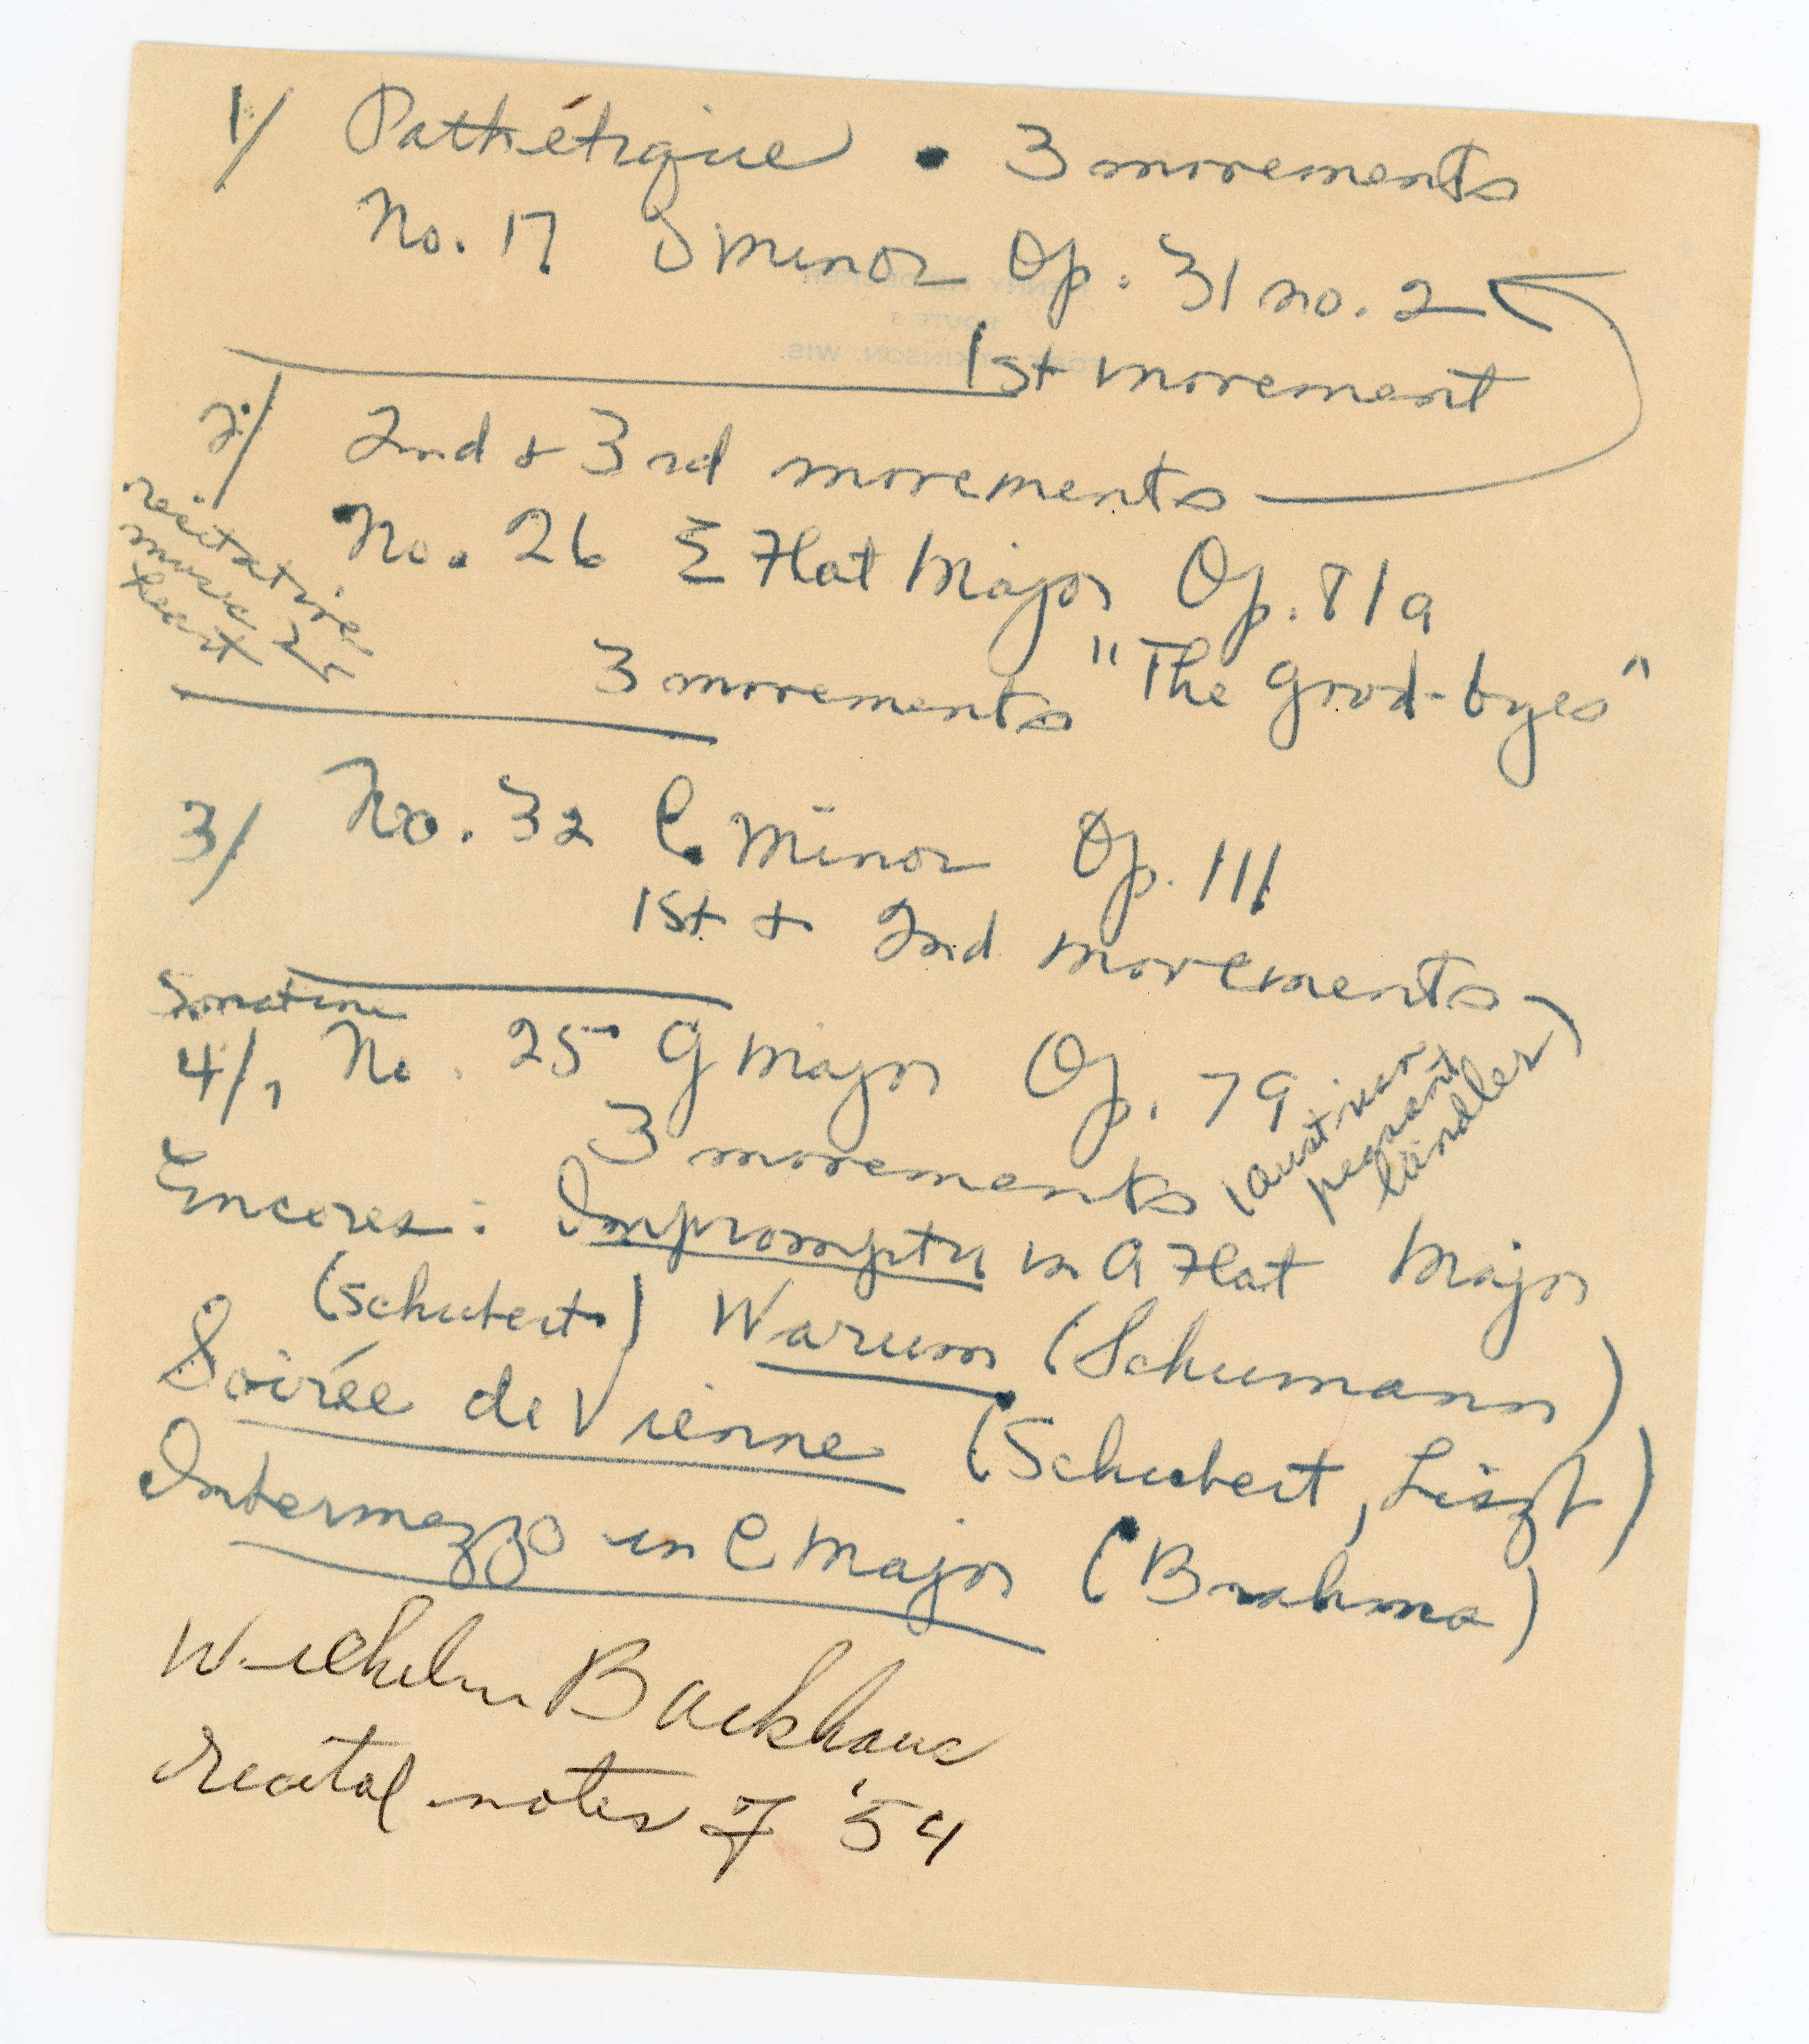 1/ Pathétique • 3 movements
No. 17 D minor Op. 31 no. 2
1st movement
2/ 2nd + 3rd movements
No. 26 E Flat Major Op. 81a
recitative
music
heart
3 movements "The Good-byes"
3/ No. 32 C Minor Op. 111
1st + 2nd movements
Sonatine
4/ No. 25 G Major Op. 79
3 movements (austrian
peasant
ländler)
Encores: Impromptu in A Flat Major
(Schubert) Warum (Schumann)
Soirée de Vienne (Schubert, Liszt)
Intermezzo in C Major (Brahms)
Wilhelm Backhaus
recital notes of '54
ROUTE 3
WIS.